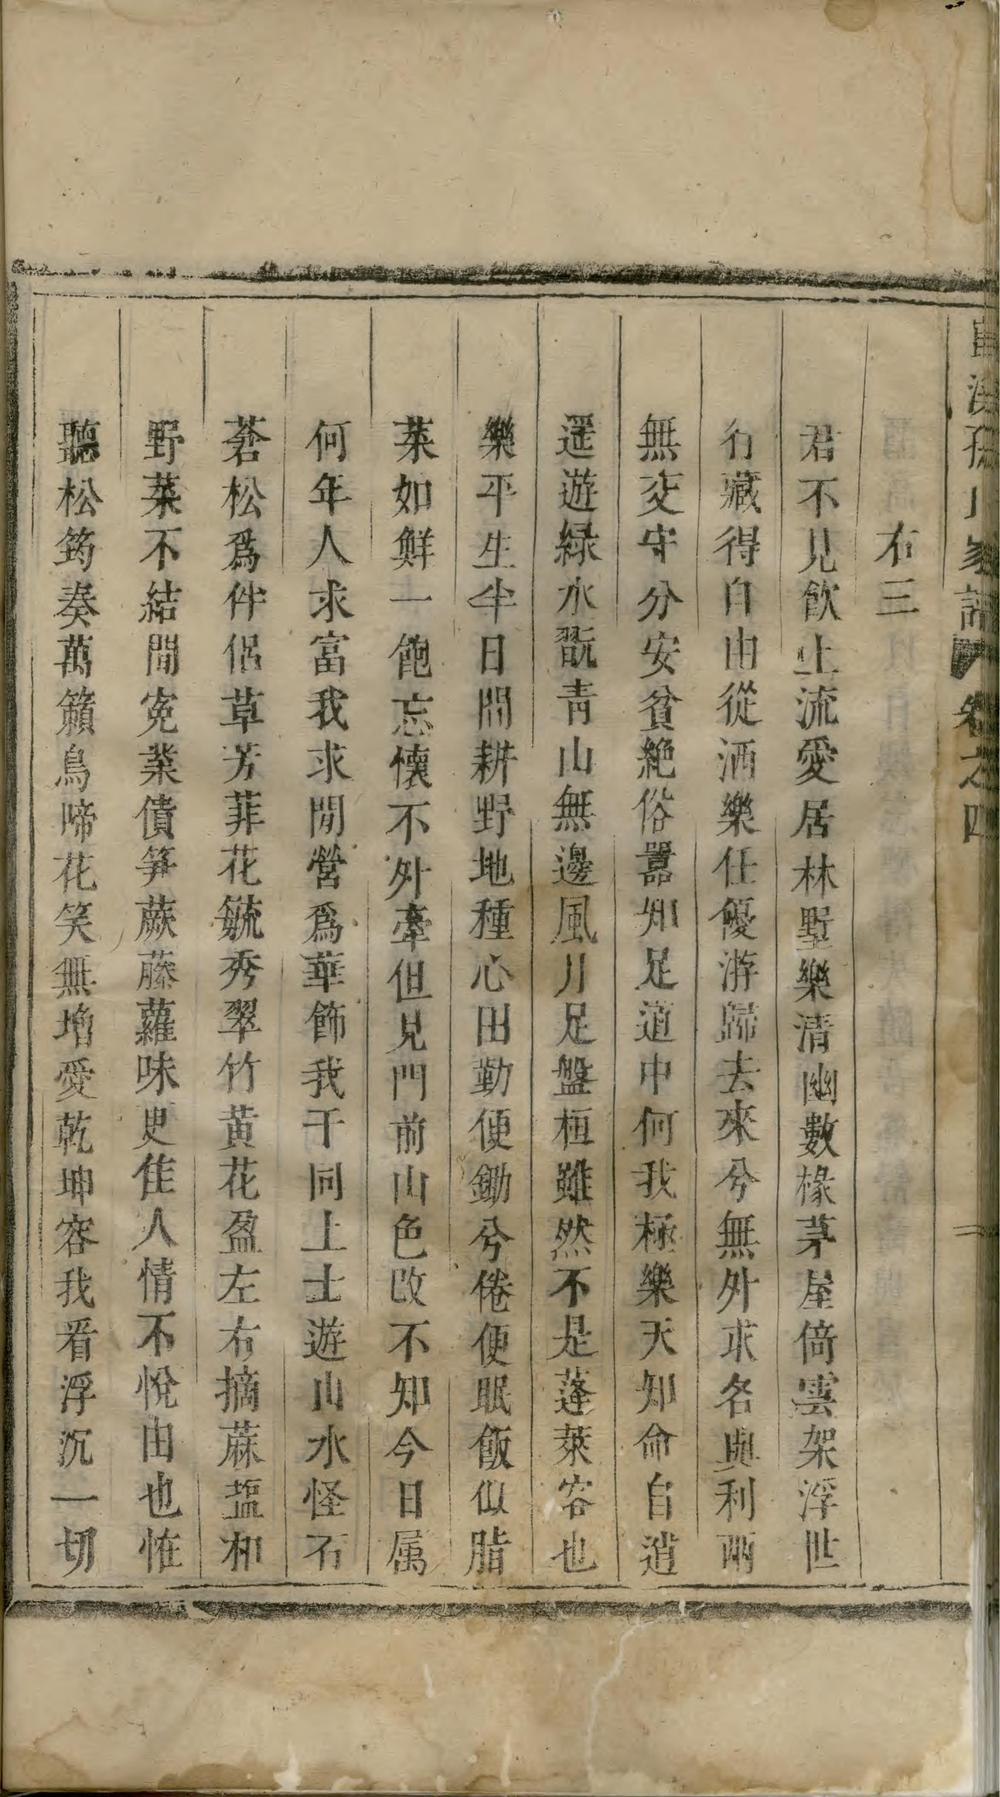 氏家譜 卷之四
右三
君不見飲上流愛居林墅樂清幽數椽茅屋倚雲架浮世
行藏得自由從洒樂仕優游歸去來兮無外求名與利兩
無交守分安貧絶俗囂知足道中何我極樂天知命自逍
遥遊緑水翫青山無邊風月足盤桓雖然不是蓬萊客也
樂平生半日間耕野地種心田勤便鋤兮倦便眠飯似脂
菜如鮮一飽忘懷不外牽但見門前山色改不知今日属
何年人求富我求閒營爲華飾我干同上士遊山水怪石
蒼松爲伴侶草芳菲花毓秀翠竹黄花盈左右摘蔴塩和
野菜不結閒寃業債笋蕨藤蘿味更佳人情不悅由他怪
聽松筠奏萬籟鳥啼花笑無增愛乾坤容我看浮沉一切